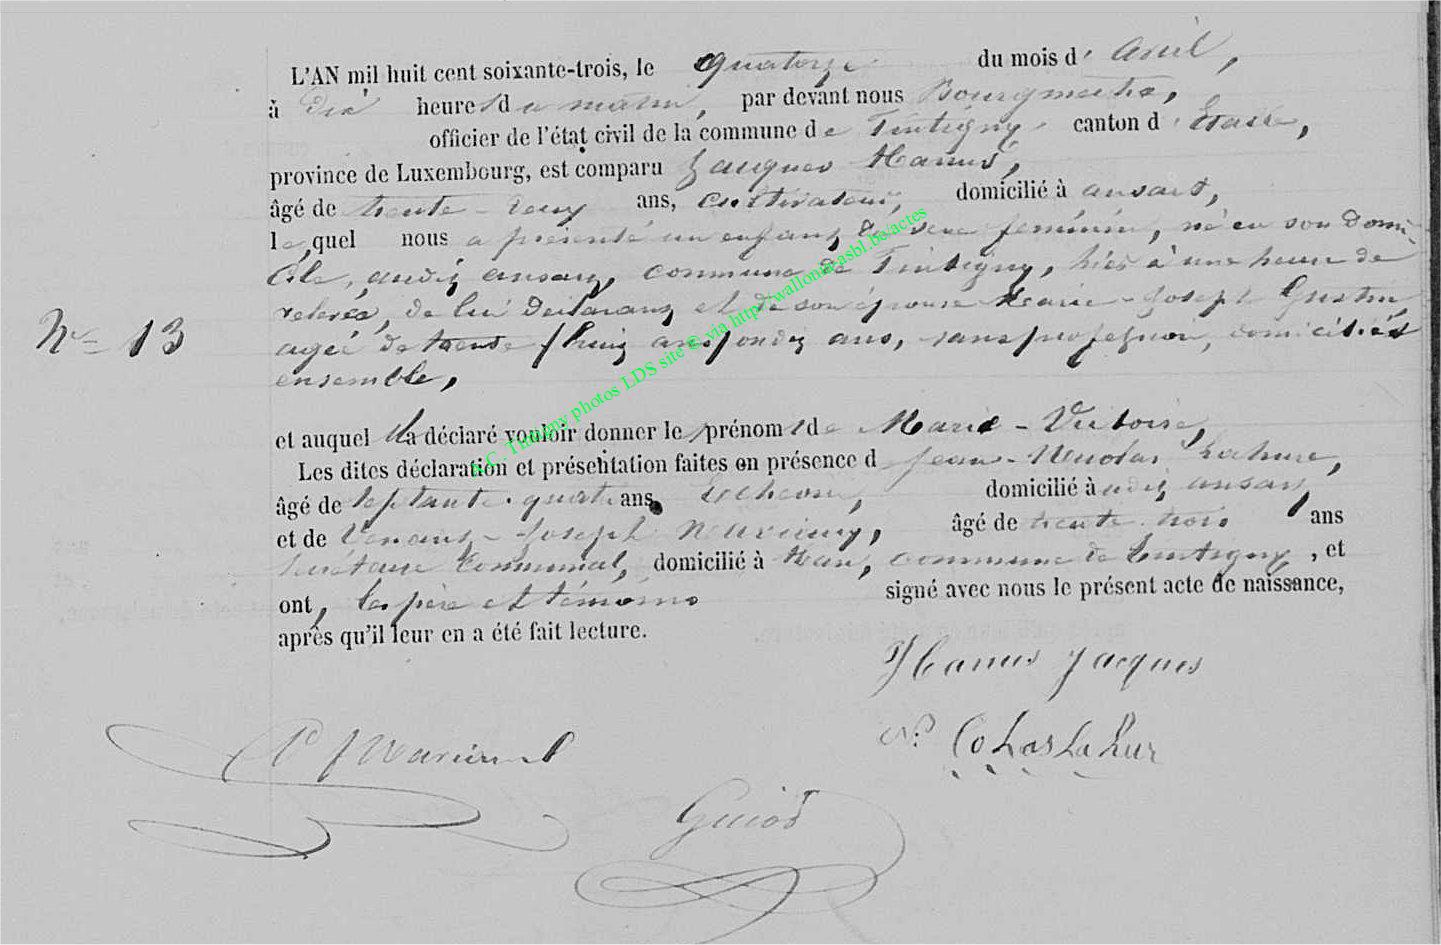 L'AN mil huit cent soixante-trois, le quatorze du mois d'avril,
à dix heures du matin, par devant nous Bourgmestre,
officier de l'état civil de la commune de Tintigny canton d'Etalle,
province de Luxembourg, est comparu Jacques Hanus,
âgé de trente-deux ans, cultivateur, domicilié à ansart,
lequel nous a présenté un enfant du sexe féminin, né en son domi-
cile, audit ansart, commune de Tintigny, hier à une heure de
relevée, de lui déclarant et de son épouse Marie-Joseph
Nº 13
agée de trente ans, sans profession, domiciliés
ensemble,
et auquel il a déclaré vouloir donner les prénoms de Marie-Victoire,
Les dites déclaration et présentation faites en présence de Jean-Nicolas Lahure,
âgé de septante-quatre ans, domicilié audit ansart
et de Venant-Joseph âgé de trente-trois ans
secrétaire communal, domicilié à Han, commune de Tintigny, et
ont, les père et témoins signé avec nous le présent acte de naissance,
après qu'il leur en a été fait lecture.
Hanus Jacques
Colas La hur
Guiot
A.C. Tintigny photos LDS site © via http://wallonia-asbl.be/actes